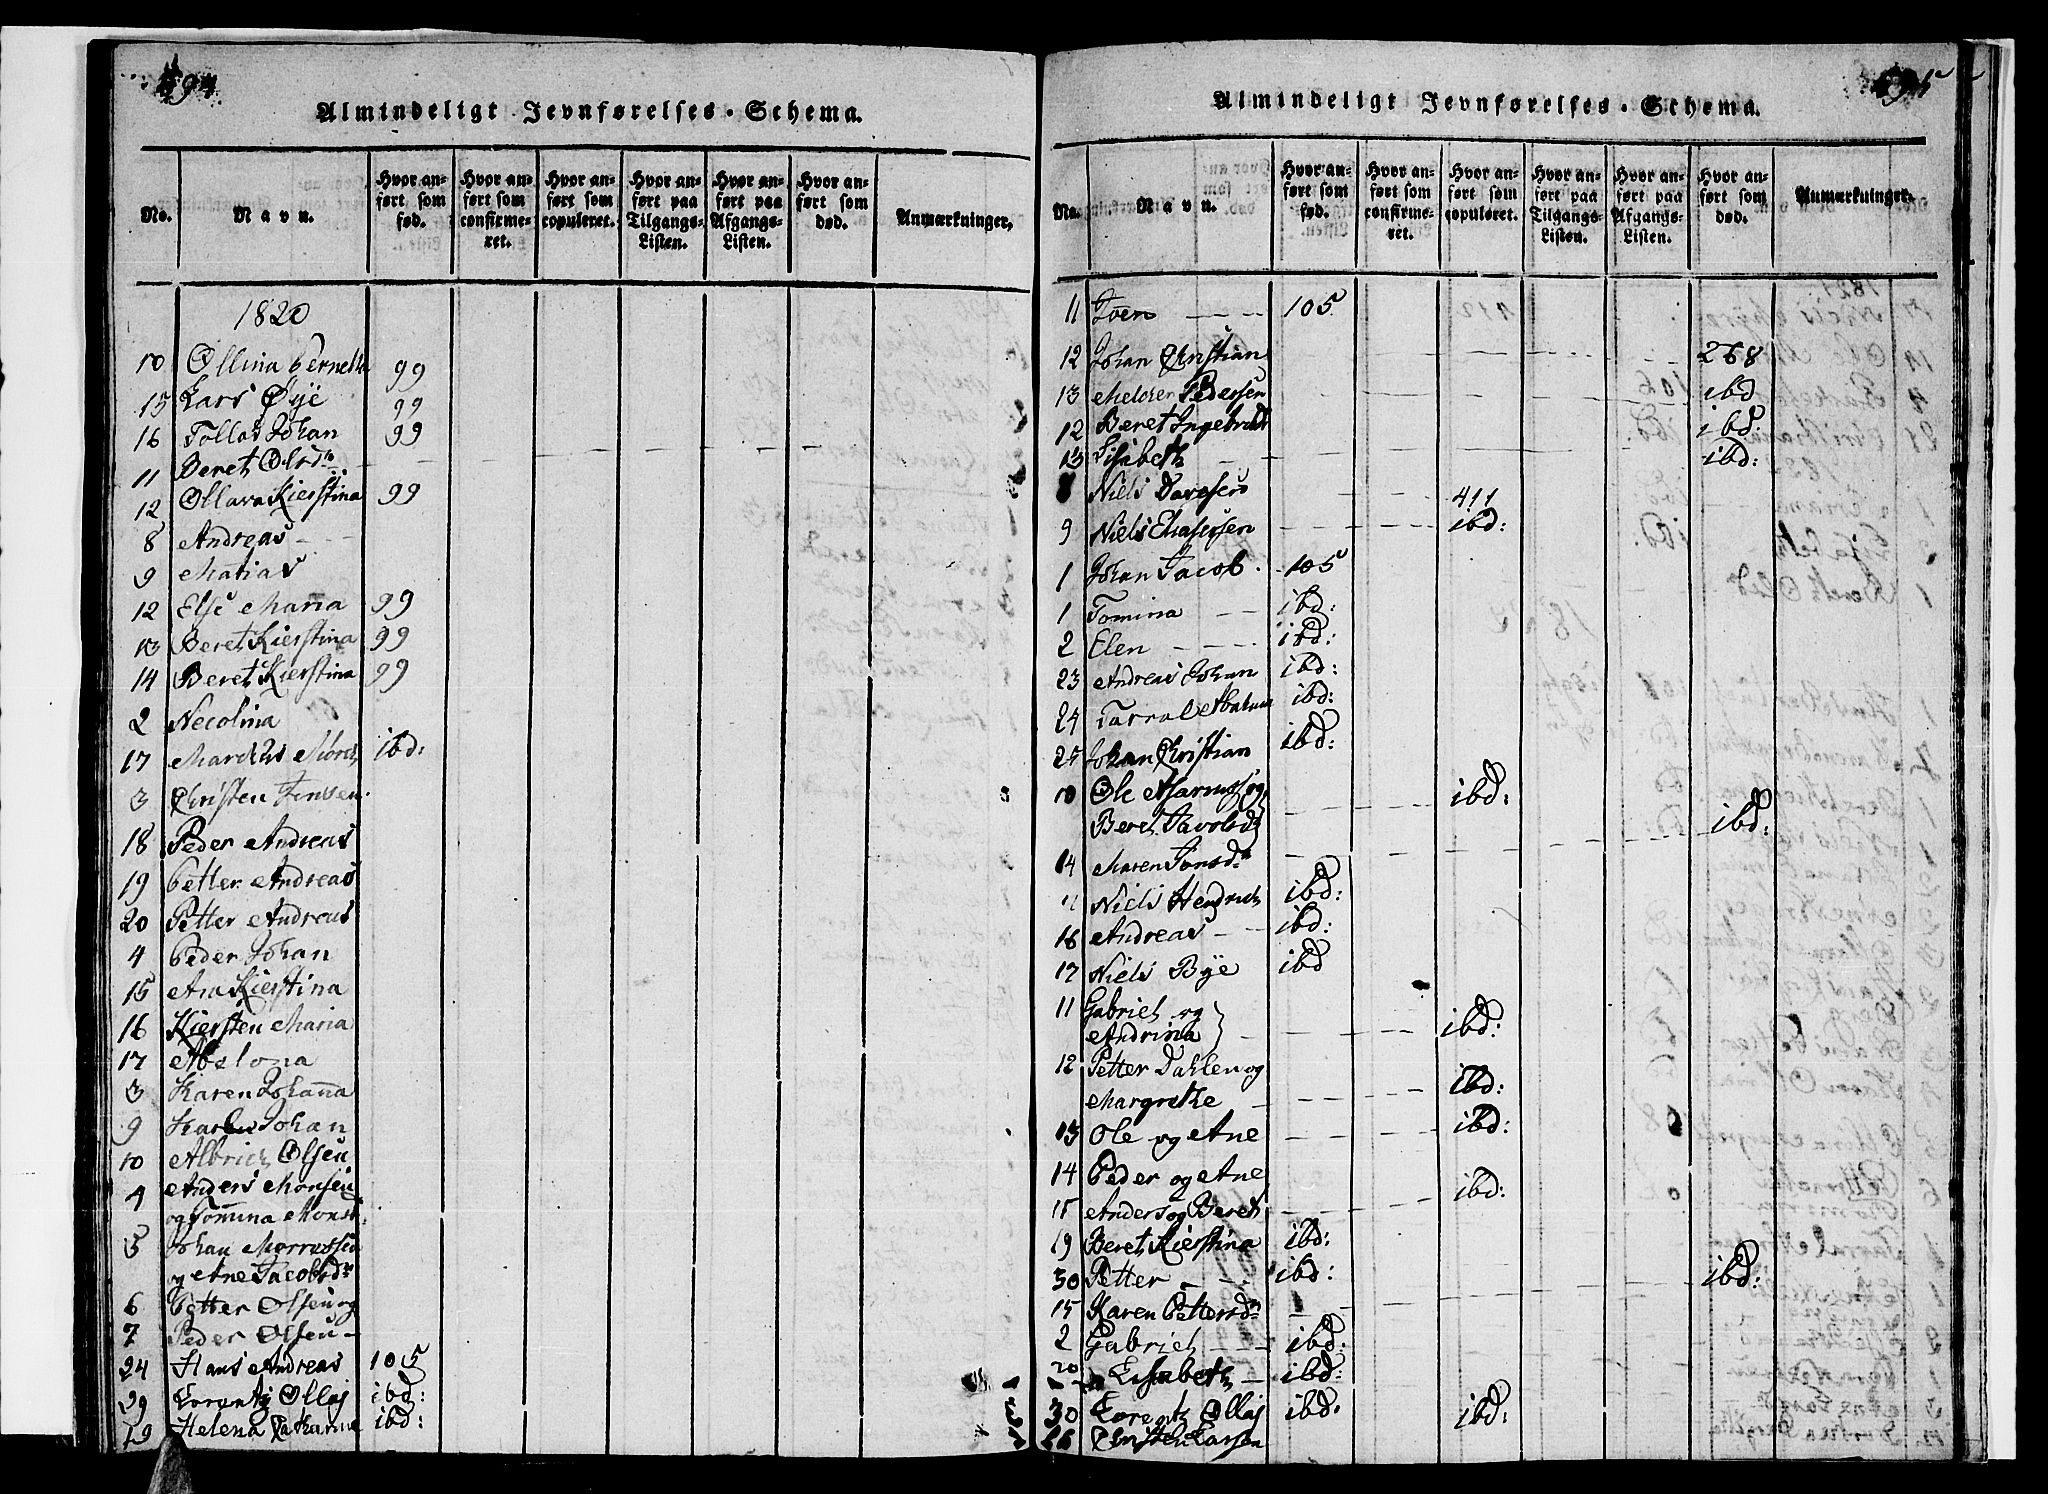 594
Almindeligt Jevnførelses-Schema.
No.
Navn.
Hvor anført som fød.
Hvor anført som confirmeret.
Hvor anført som copuleret.
Hvor anført paa Tilgangs-Listen.
Hvor anført paa Afgangs-Listen.
Hvor anført som død.
Anmærkninger.
1820
10 Ollina Pernella 99
15 Lars Øye 99
16 Tollof Johan 99
11 Beret Olsdr
12 Ollava Kierstina 99
8 Andreas
9 Matias
12 Else Maria 99
13 Beret Kierstina 99
14 Beret Kierstina 99
2 Necolina
17 Marcus ibd:
3 Christen Jensen
18 Peder Andreas
19 Petter Andreas
20 Petter Andreas
4 Peder Johan
15 Ana Kierstina
16 Kiersten Maria
17 Abelona
3 Karen Johanna
9 Johan
10 Albrich Olsen
4 Anders Monsen
og Tomina Monsdr
5 Johan
og Ane Jacobsdr
6 Petter Olsen og
7 Peder Olsen
24 Hans Andreas 105
29 Lorentz Ollaj ibd:
19 Helena Catharina ibd:
595
Almindeligt Jevnførelses-Schema.
No.
Navn.
Hvor anført som fød.
Hvor anført som confirmeret.
Hvor anført som copuleret.
Hvor anført paa Tilgangs-Listen.
Hvor anført paa Afgangs-Listen.
Hvor anført som død.
Anmærkninger.
11 Iven 105
12 Johan Christian 268
13 Melcher Pedersen ibd
12 Beret Ingebridt ibd:
13 Lisabeth ibd:
Niels 411
9 Niels ibd:
1 Johan Jacob 105
1 Tomina ibd:
2 Elen ibd:
23 Andreas Johan ibd:
24 ibd:
25 Johan Christian ibd:
10 Ole og ibd:
Beret ibd:
14 Maren Jonsdr
Niels Hendrich ibd:
16 Andreas ibd:
17 Niels Bye ibd
11 Gabriel og
Andrina ibd:
12 Petter Dahlen og
Margrethe ibd:
13 Ole og Ane ibd:
14 Peder og Ane ibd:
15 Anders og Beret
19 Beret Kierstina ibd:
30 Petter ibd: ibd:
15 Karen Pettersdr
2 Gabriel ibd:
20 Elisabeth ibd:
30 Lorentz Ollaj ibd: ibd:
16 Christen Larsen